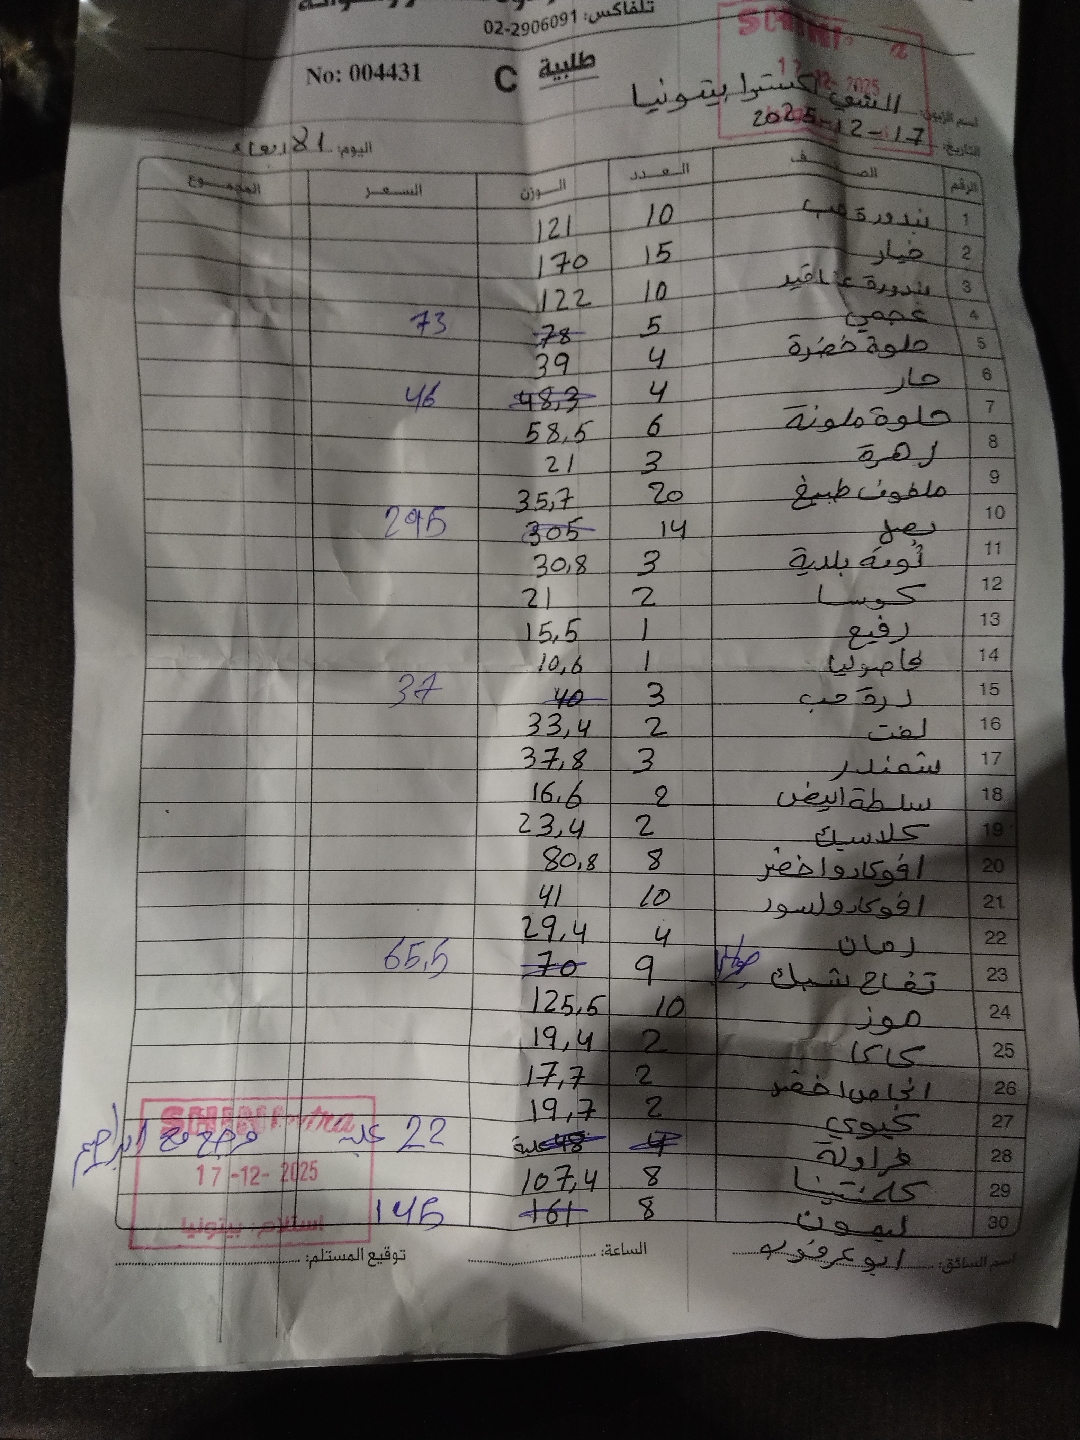 تلفاكس: 02-2906091
No: 004431 C طلبية
اسم الزبون: الشني اكسترا بيتونيا
التاريخ: 17-12-2025
اليوم: الاربعاء
الرقم الصنف العدد الوزن السعر المجموع
1 بندورة حب 10 121
2 خيار 15 170
3 بندورة عناقيد 10 122
4 عجمي 5 78 73
5 حلوة خضرة 4 39
6 حار 4 48,3 46
7 حلوة ملونة 6 58,5
8 زهرة 3 21
9 ملفوف طبيخ 20 35,7
10 بصل 14 305 295
11 ثومة بلدية 3 30,8
12 كوسا 2 21
13 رفيع 1 15,5
14 فاصوليا 1 10,6
15 درة حب 3 40 37
16 لفت 2 33,4
17 شمندر 3 37,8
18 سلطة ابيض 2 16,6
19 كلاسيك 2 23,4
20 افوكادو اخضر 8 80,8
21 افوكادو اسود 10 41
22 رمان 4 29,4
23 تفاح شبك 9 70 65,5
24 موز 10 125,5
25 كاكا 2 19,4
26 انجاص اخضر 2 17,7
27 كيوي 2 19,7
28 فراولة 4 48 علبة 22 علبة
29 كلمنتينا 8 107,4
30 ليمون 8 161 145
SHINI extra
17-12-2025
استلام بيتونيا
اسم السائق: ابو عرقوب الساعة: توقيع المستلم: